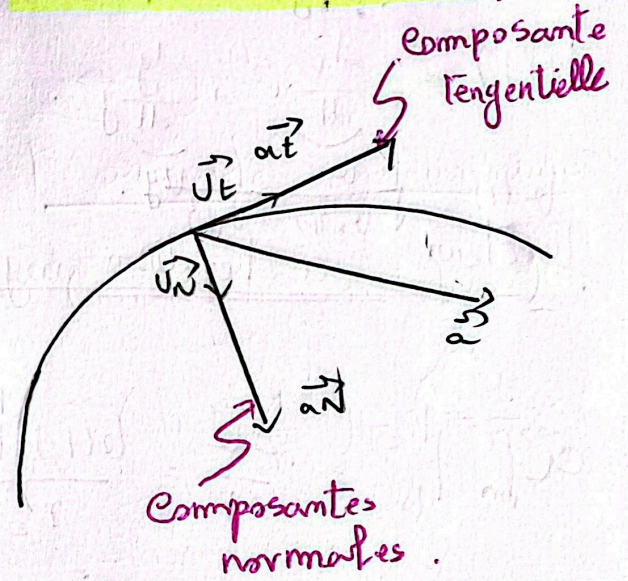 composante
Tengentielle
at
Ut
UN
a
aN
Composantes
normales.